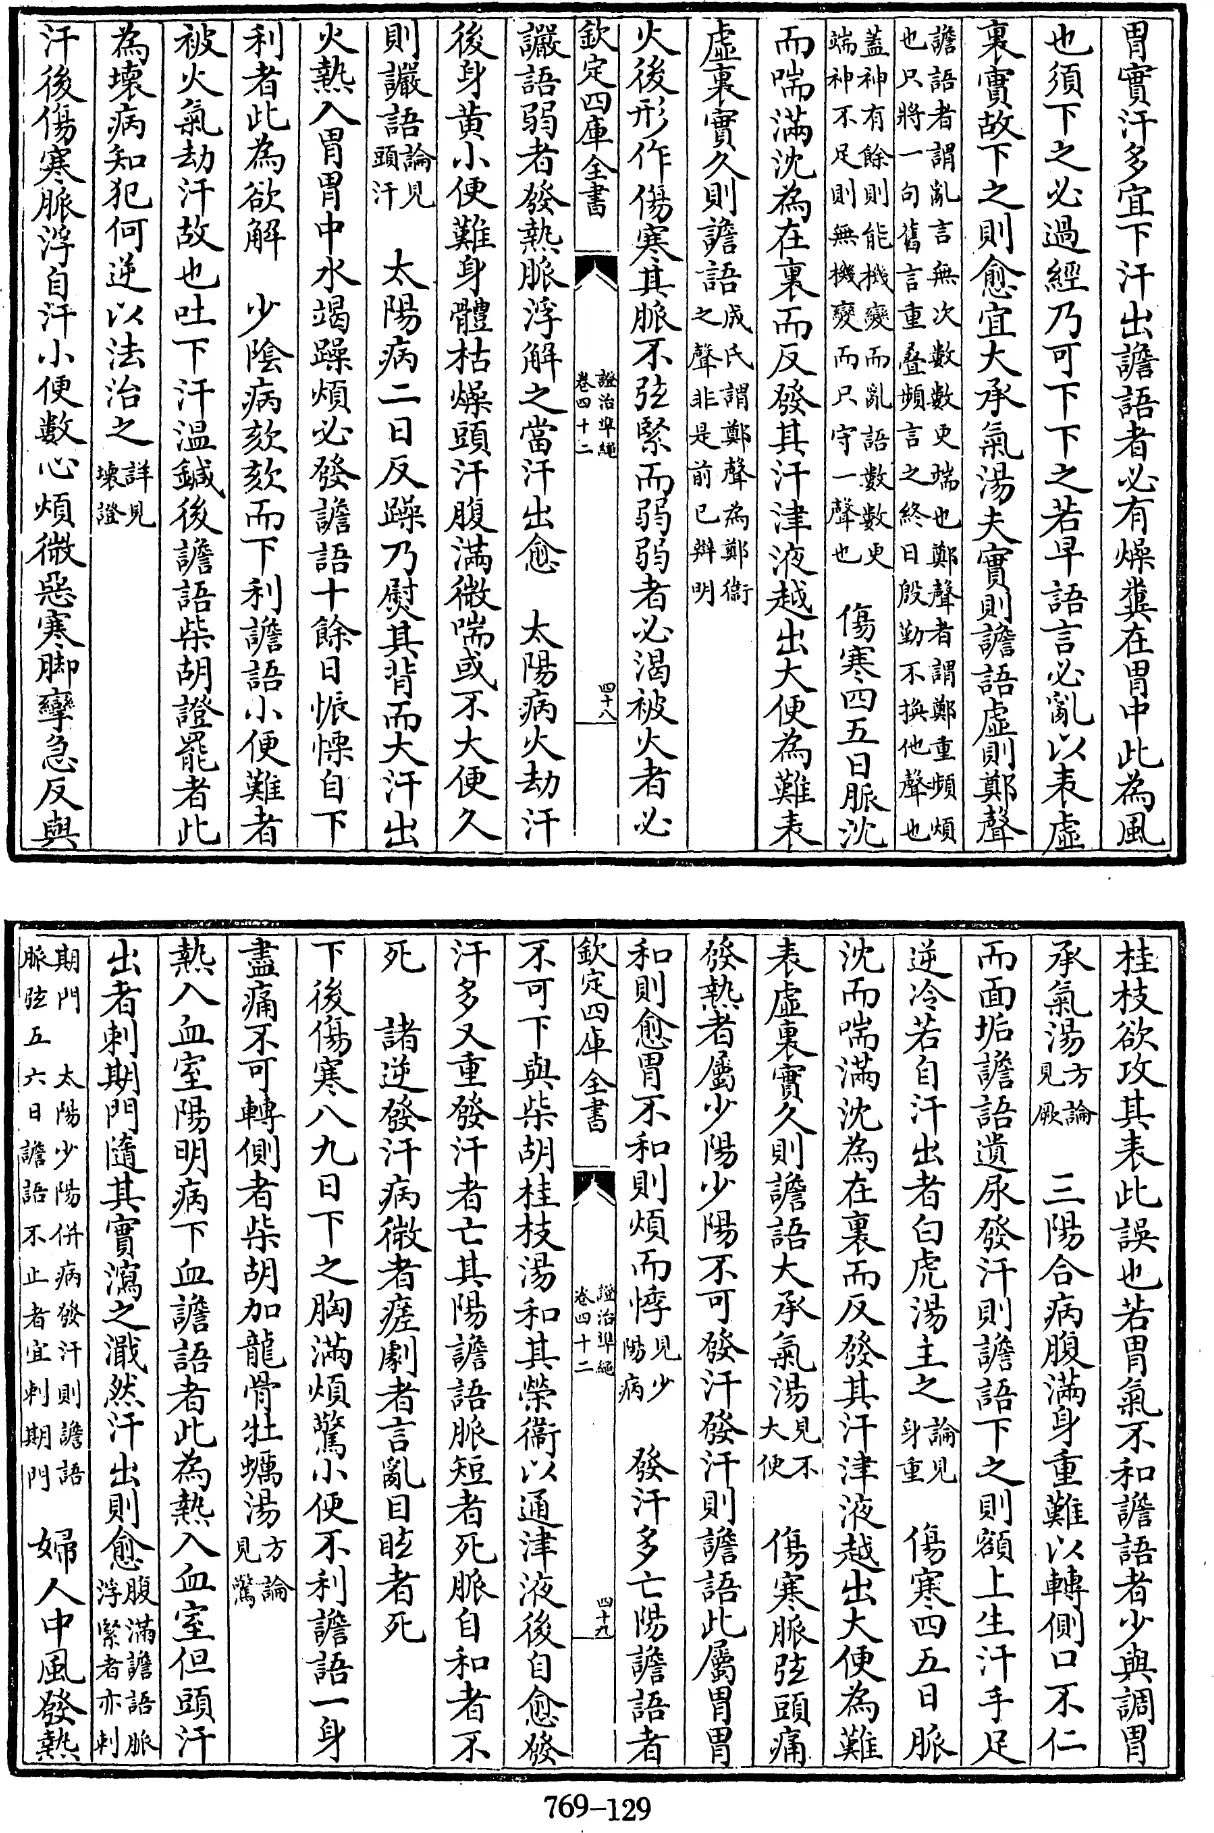 胃實汗多宜下汗出譫語者必有燥糞在胃中此為風
也須下之必過經乃可下下之若早語言必亂以表虛
裏實故下之則愈宜大承氣湯夫實則譫語虛則鄭聲
譫語者謂亂言無次數數更端也鄭聲者謂鄭重頻煩
也只將一句舊言重疊頻言之終日殷勤不換他聲也
蓋神有餘則能機變而亂語數數更
端神不足則無機變而只守一聲也
傷寒四五日脈沈
而喘滿沈為在裏而反發其汗津液越出大便為難表
虛裏實久則譫語
成氏謂鄭聲為鄭衞
之聲非是前已辯明
火後形作傷寒其脈不弦緊而弱弱者必渴被火者必
欽定四庫全書
證治準繩
卷四十二
四十八
讝語弱者發熱脈浮解之當汗出愈 太陽病火劫汗
後身黄小便難身體枯燥頭汗腹滿微喘或不大便久
則讝語
論見
頭汗
太陽病二日反躁乃熨其背而大汗出
火熱入胃胃中水竭躁煩必發譫語十餘日振慄自下
利者此為欲解 少陰病欬欬而下利譫語小便難者
被火氣劫汗故也吐下汗温鍼後譫語柴胡證罷者此
為壞病知犯何逆以法治之
詳見
壞證
汗後傷寒脈浮自汗小便數心煩微惡寒脚攣急反與
桂枝欲攻其表此誤也若胃氣不和譫語者少與調胃
承氣湯
方論
見厥
三陽合病腹滿身重難以轉側口不仁
而面垢譫語遺尿發汗則譫語下之則額上生汗手足
逆冷若自汗出者白虎湯主之
論見
身重
傷寒四五日脈
沈而喘滿沈為在裏而反發其汗津液越出大便為難
表虛裏實久則譫語大承氣湯
見不
大便
傷寒脈弦頭痛
發熱者屬少陽少陽不可發汗發汗則譫語此屬胃胃
和則愈胃不和則煩而悸
見少
陽病
發汗多亡陽譫語者
欽定四庫全書
證治準繩
卷四十二
四十九
不可下與柴胡桂枝湯和其榮衞以通津液後自愈發
汗多又重發汗者亡其陽譫語脈短者死脈自和者不
死 諸逆發汗病微者瘥劇者言亂目眩者死
下後傷寒八九日下之胸滿煩驚小便不利譫語一身
盡痛不可轉側者柴胡加龍骨牡蠣湯
方論
見驚
熱入血室陽明病下血譫語者此為熱入血室但頭汗
出者刺期門隨其實瀉之濈然汗出則愈
腹滿譫語脈
浮緊者亦刺
期門 太陽少陽併病發汗則譫語
脈弦五六日譫語不止者宜刺期門
婦人中風發熱
769-129